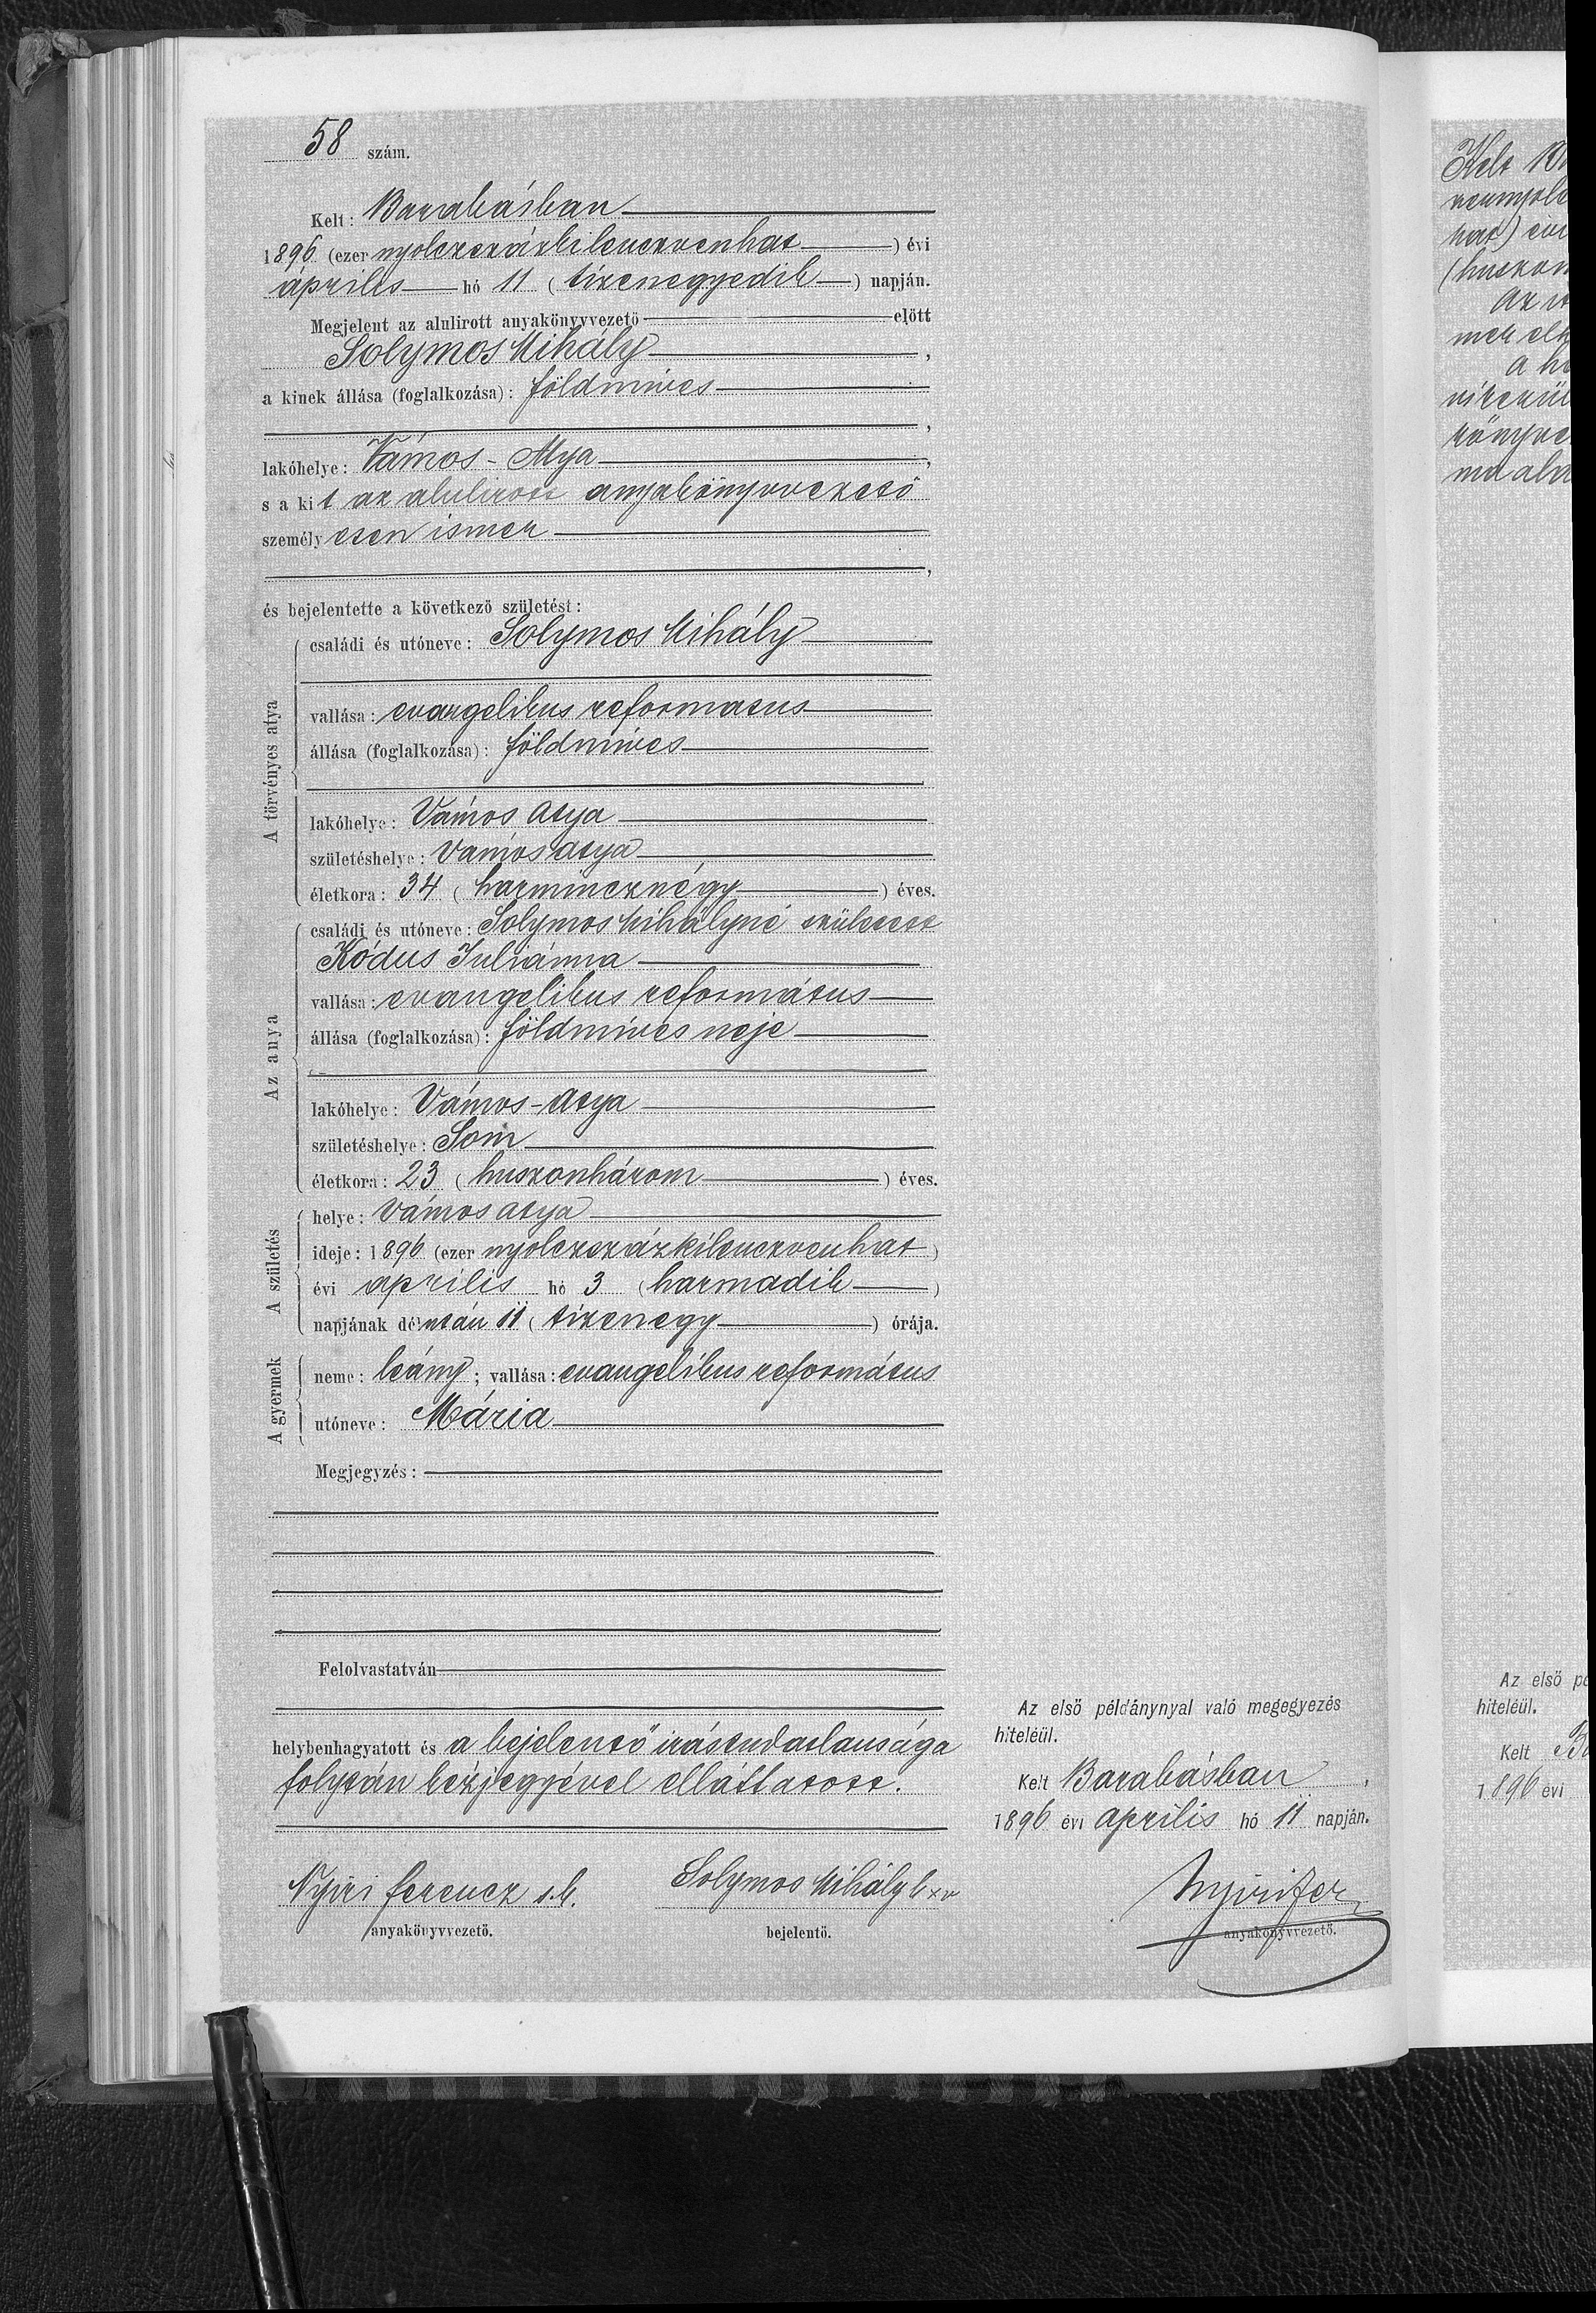 58 szám.
Kelt: Barabásban
1896 (ezer nyolczszázkilenczvenhat) évi
április hó 11 (tizenegyedik) napján.
Megjelent az alulirott anyakönyvvezető előtt
Solymos Mihály,
a kinek állása (foglalkozása): földmíves
,
lakóhelye: Vámos-Atya,
s a kit az alulirott anyakönyvvezető
személyesen ismer
,
és bejelentette a következő születést:
A törvényes atya
családi és utóneve: Solymos Mihály
vallása: evangelikus reformatus
állása (foglalkozása): földmíves
lakóhelye: Vámos Atya
születéshelye: Vámosatya
életkora: 34 (harmincznégy) éves.
Az anya
családi és utóneve: Solymos Mihályné született
Kódus Juliánna
vallása: evangelikus református
állása (foglalkozása): földmíves neje
lakóhelye: Vámos-Atya
születéshelye: Som
életkora: 23 (huszonhárom) éves.
A születés
helye: Vámosatya
ideje: 1896 (ezer nyolczszázkilenczvenhat)
évi április hó 3 (harmadik)
napjának délután 11 (tizenegy) órája.
A gyermek
neme: leány; vallása: evangelikus református
utóneve: Mária
Megjegyzés:
Felolvastatván
helybenhagyatott és a bejelentő irástudatlansága
folytán kézjegyével elláttatott.
Nyiri Ferencz s.k.
anyakönyvvezető.
Solymos Mihály k x v
bejelentő.
Az első példánynyal való megegyezés
hiteléül.
Kelt Barabásban,
1896 évi április hó 11 napján.
Nyiri Fer
anyakönyvvezető.
Kelt
(huszon
Az első pé
hiteléül.
Kelt
1896 évi